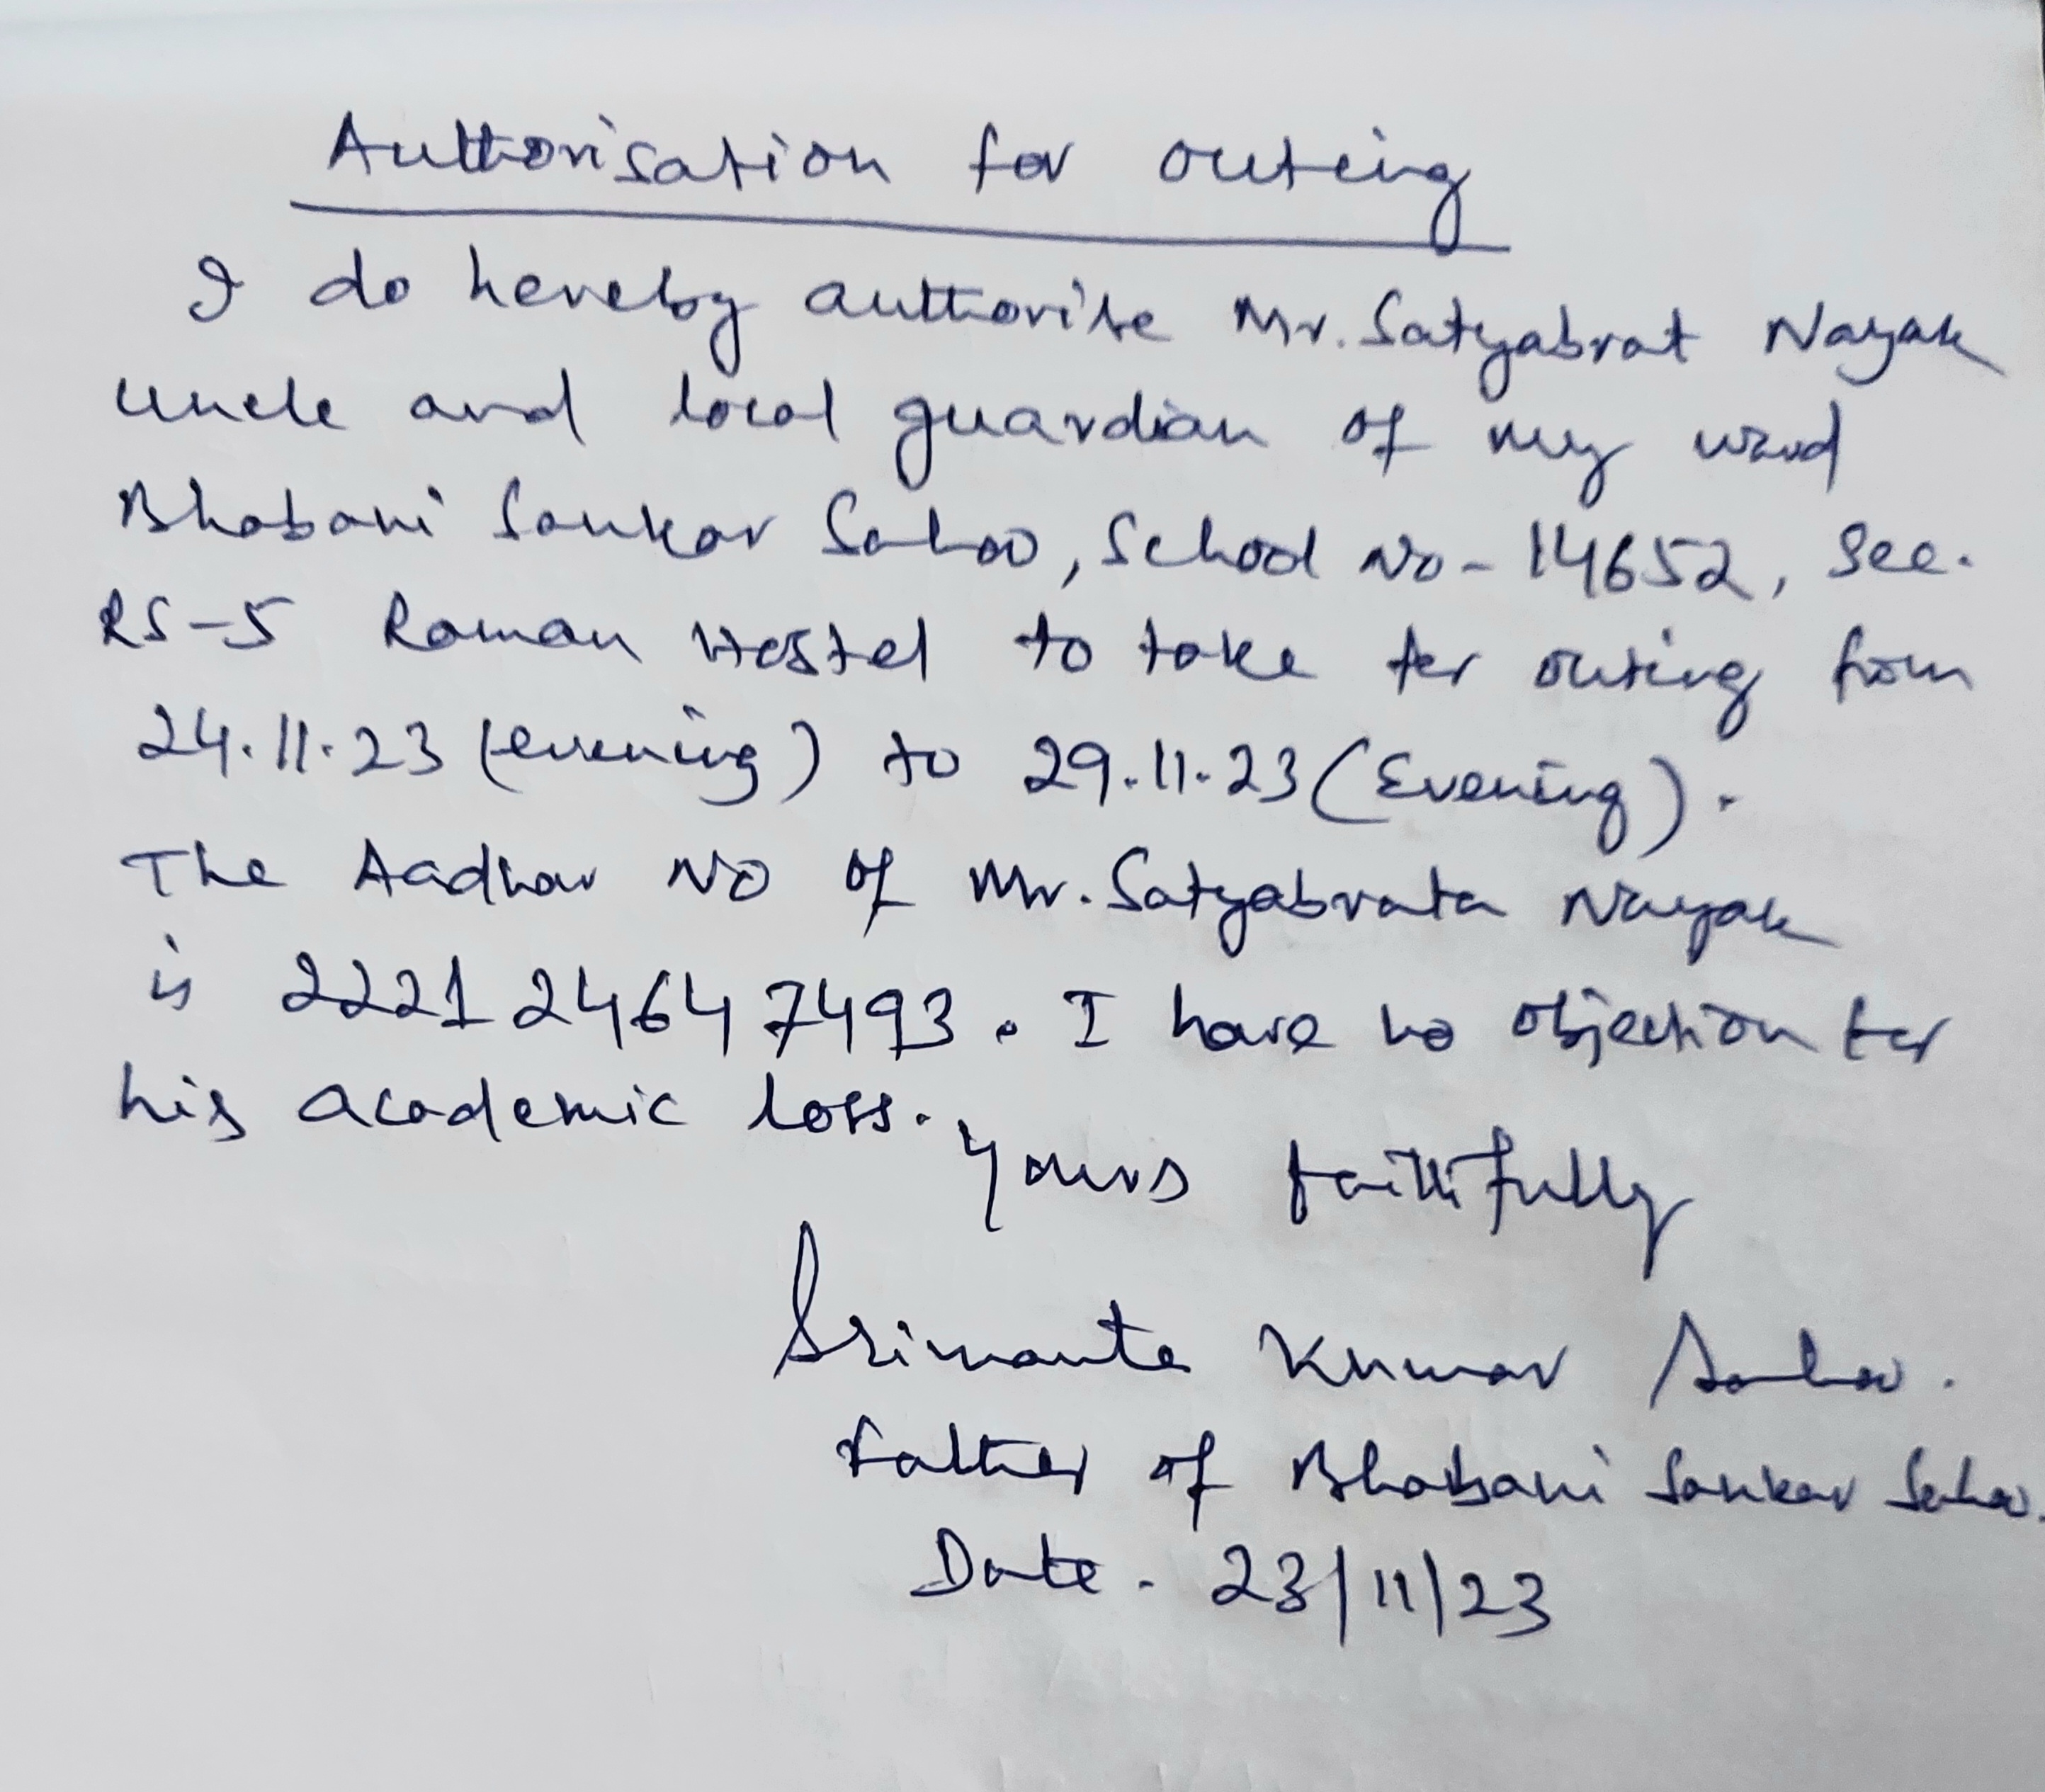 Authorisation for outing
I do hereby authorise Mr. Satyabrat Nayak
uncle and local guardian of my ward
Bhabani Sankar Sahoo, School No - 14652, Sec.
RS-5 Raman Hostel to take for outing from
24.11.23 (evening) to 29.11.23 (Evening).
The Aadhar No of Mr. Satyabrata Nayak
is 2221 2464 7493. I have no objection for
his academic loss.
Yours faithfully
Srimanta Kumar Sahoo.
Father of Bhabani Sankar Sahoo.
Date - 23/11/23